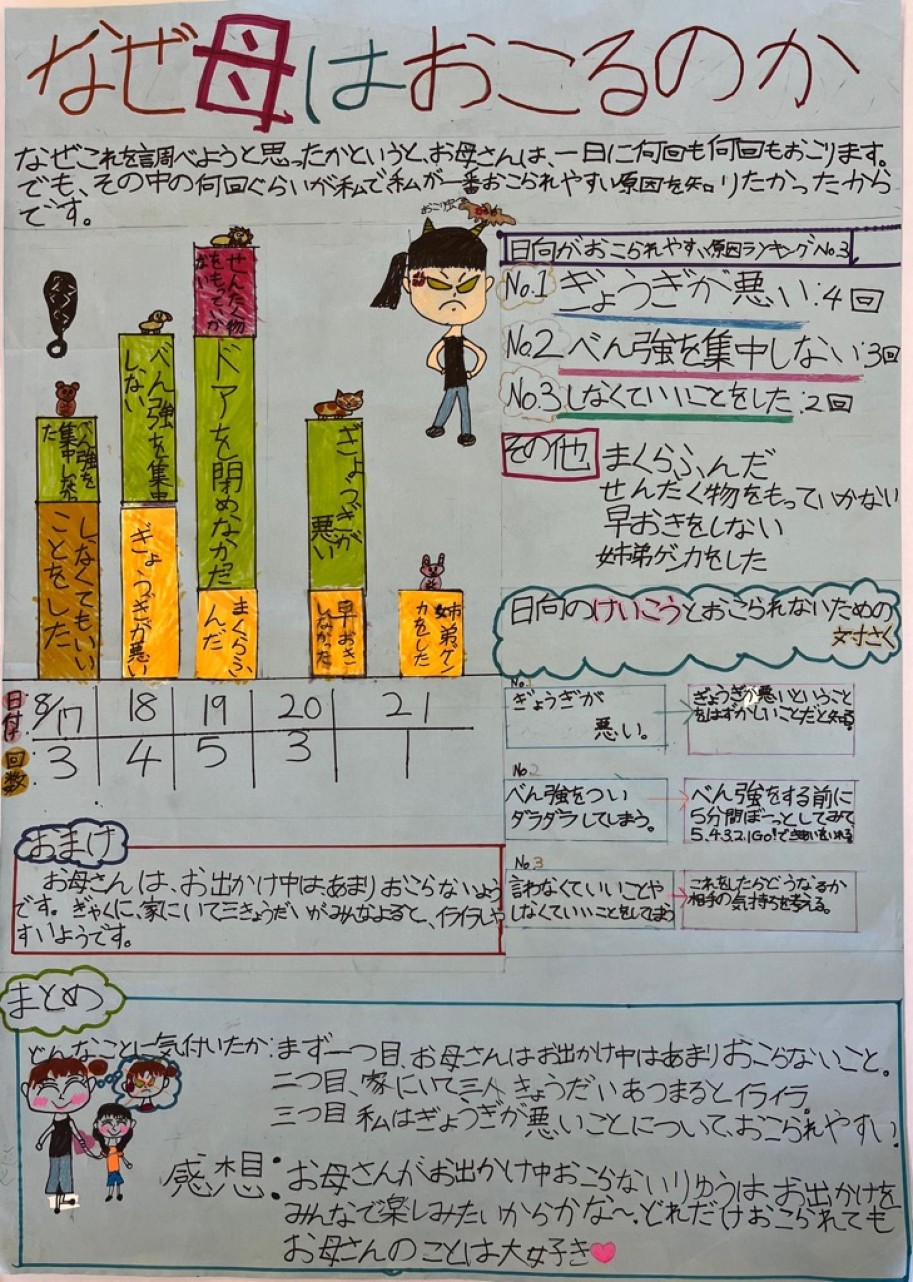 なぜ母はおこるのか
なぜこれを調べようと思ったかというと、お母さんは、一日に何回も何回もおこります。
でも、その中の何回ぐらいが私で私が一番おこられやすい原因を知りたかったから
です。
おこり虫
日向がおこられやすい原因ランキングNo.3
No.1 ぎょうぎが悪い:4回
No.2 べん強を集中しない:3回
No.3 しなくていいことをした:2回
その他
まくらふんだ
せんたく物をもっていかない
早おきをしない
姉弟ゲンカをした
べん強を
集中しなかっ
た
しなくてもいい
ことをした
べん強を集中
しない
ぎょうぎが悪い
せんたく物
をもっていか
ない
ドアを閉めなかった
まくらふ
んだ
ぎょうぎが
悪い
早おき
しなかった
姉弟ゲン
カをした
日付け 8/17 18 19 20 21
回数 3 4 5 3 1
日向のけいこうとおこられないための
対さく
No.1
ぎょうぎが
悪い。
ぎょうぎが悪いということ
をはずかしいことだと知る
No.2
べん強をつい
ダラダラしてしまう。
べん強をする前に
5分間ぼーっとしてみて
5.4.3.2.1Go!できあいをいれる
No.3
言わなくていいことや、
しなくていいことをしてしまう
これをしたらどうなるか
相手の気持ちを考える。
おまけ
お母さんは、お出かけ中は、あまりおこらないよう
です。ぎゃくに、家にいて三きょうだいがみんなよると、イライラしや
すいようです。
まとめ
どんなことに気付いたか:まず一つ目、お母さんはお出かけ中はあまりおこらないこと。
二つ目、家にいて三人きょうだいあつまるとイライラ。
三つ目 私はぎょうぎが悪いことについて、おこられやすい!
感想:お母さんがお出かけ中おこらないりゆうは、お出かけを
みんなで楽しみたいからかな〜。どれだけおこられても
お母さんのことは大好き♥